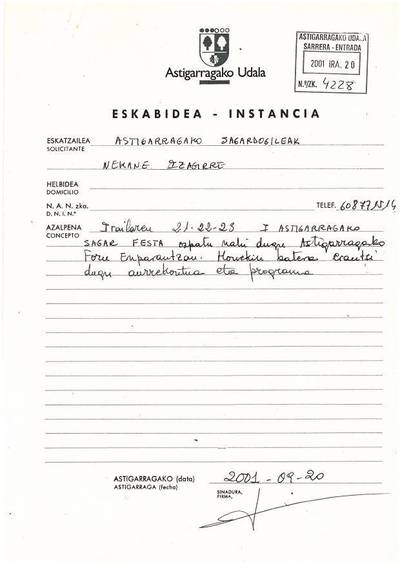 Astigarragako Udala
ASTIGARRAGAKO UDALA
SARRERA - ENTRADA
2001 IRA. 20
N.º/ZK. 4228
ESKABIDEA - INSTANCIA
ESKATZAILEA ASTIGARRAGAKO SAGARDOGILEAK
SOLICITANTE
NEKANE IZAGIRRE
HELBIDEA
DOMICILIO
N. A. N. zka. TELEF.
D. N. I. N.º
AZALPENA Irailaren 21-22-23 I ASTIGARRAGAKO
CONCEPTO SAGAR FESTA ospatu nahi dugu Astigarragako
Foru Enparantzan. Honekin batera erantsi
dugu aurrekontua eta programa
ASTIGARRAGAKO (data) 2001-09-20
ASTIGARRAGA (fecha)
SINADURA,
FIRMA,